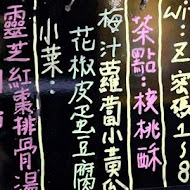 Wi
Z 密碼1~8
茶點:核桃酥
梅汁蘿蔔小黃瓜
花椒皮蛋豆腐
小菜:
靈芝紅棗排骨湯